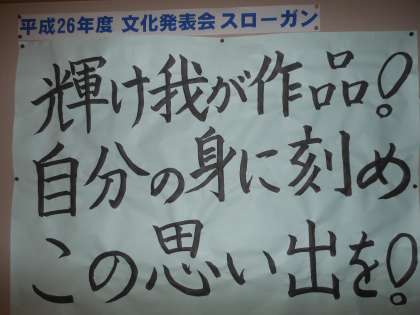 平成26年度 文化発表会 スローガン
輝け我が作品!
自分の身に刻め
この思い出を!